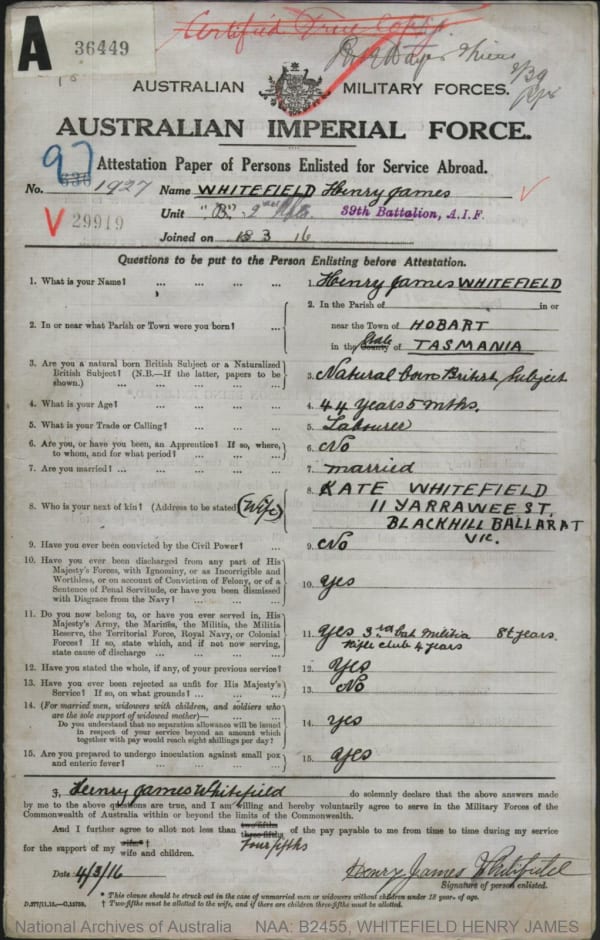 A
36449
Certified True Copy
AUSTRALIAN MILITARY FORCES.
AUSTRALIAN IMPERIAL FORCE.
97
Attestation Paper of Persons Enlisted for Service Abroad.
No. 1927 Name WHITEFIELD Henry James
Unit "B" 39th Battalion, A.I.F.
V 29919
Joined on 3 16
Questions to be put to the Person Enlisting before Attestation.
1. What is your Name? ... ... ... ... 1. Henry James WHITEFIELD
2. In or near what Parish or Town were you born? ... 2. In the Parish of in or
near the Town of HOBART
in the County State of TASMANIA
3. Are you a natural born British Subject or a Naturalized
British Subject? (N.B.—If the latter, papers to be
shown.) ... ... ... ... 3. Natural born British Subject
4. What is your Age? ... ... ... ... 4. 44 years 5 mths.
5. What is your Trade or Calling? ... ... ... 5. Labourer
6. Are you, or have you been, an Apprentice? If so, where,
to whom, and for what period? ... ... ... 6. No
7. Are you married? ... ... ... ... 7. married
8. Who is your next of kin? (Address to be stated) (Wife) 8. KATE WHITEFIELD
11 YARRAWEE ST.
BLACKHILL BALLARAT
VIC.
9. Have you ever been convicted by the Civil Power? ... 9. No
10. Have you ever been discharged from any part of His
Majesty's Forces, with Ignominy, or as Incorrigible and
Worthless, or on account of Conviction of Felony, or of a
Sentence of Penal Servitude, or have you been dismissed
with Disgrace from the Navy? ... ... ... 10. yes
11. Do you now belong to, or have you ever served in, His
Majesty's Army, the Marines, the Militia, the Militia
Reserve, the Territorial Force, Royal Navy, or Colonial
Forces? If so, state which, and if not now serving,
state cause of discharge ... ... ... 11. yes 3rd Bat Militia years.
Rifle club 4 years
12. Have you stated the whole, if any, of your previous service? 12. Yes
13. Have you ever been rejected as unfit for His Majesty's
Service? If so, on what grounds? ... ... ... 13. No
14. (For married men, widowers with children, and soldiers who
are the sole support of widowed mother)—
Do you understand that no separation allowance will be issued
in respect of your service beyond an amount which
together with pay would reach eight shillings per day? 14. yes
15. Are you prepared to undergo inoculation against small pox
and enteric fever? ... ... ... ... 15. Yes
I, Henry James Whitefield do solemnly declare that the above answers made
by me to the above questions are true, and I am willing and hereby voluntarily agree to serve in the Military Forces of the
Commonwealth of Australia within or beyond the limits of the Commonwealth.
And I further agree to allot not less than two-fifths three-fifths of the pay payable to me from time to time during my service
four fifths
for the support of my wife* † wife and children.
Date 4/3/16 Henry James Whitefield
Signature of person enlisted.
* This clause should be struck out in the case of unmarried men or widowers without children under 18 year. of age.
D.277/11.15.—C.15709. † Two-fifths must be allotted to the wife, and if there are children three-fifths must be allotted.
National Archives of Australia NAA: B2455, WHITEFIELD HENRY JAMES